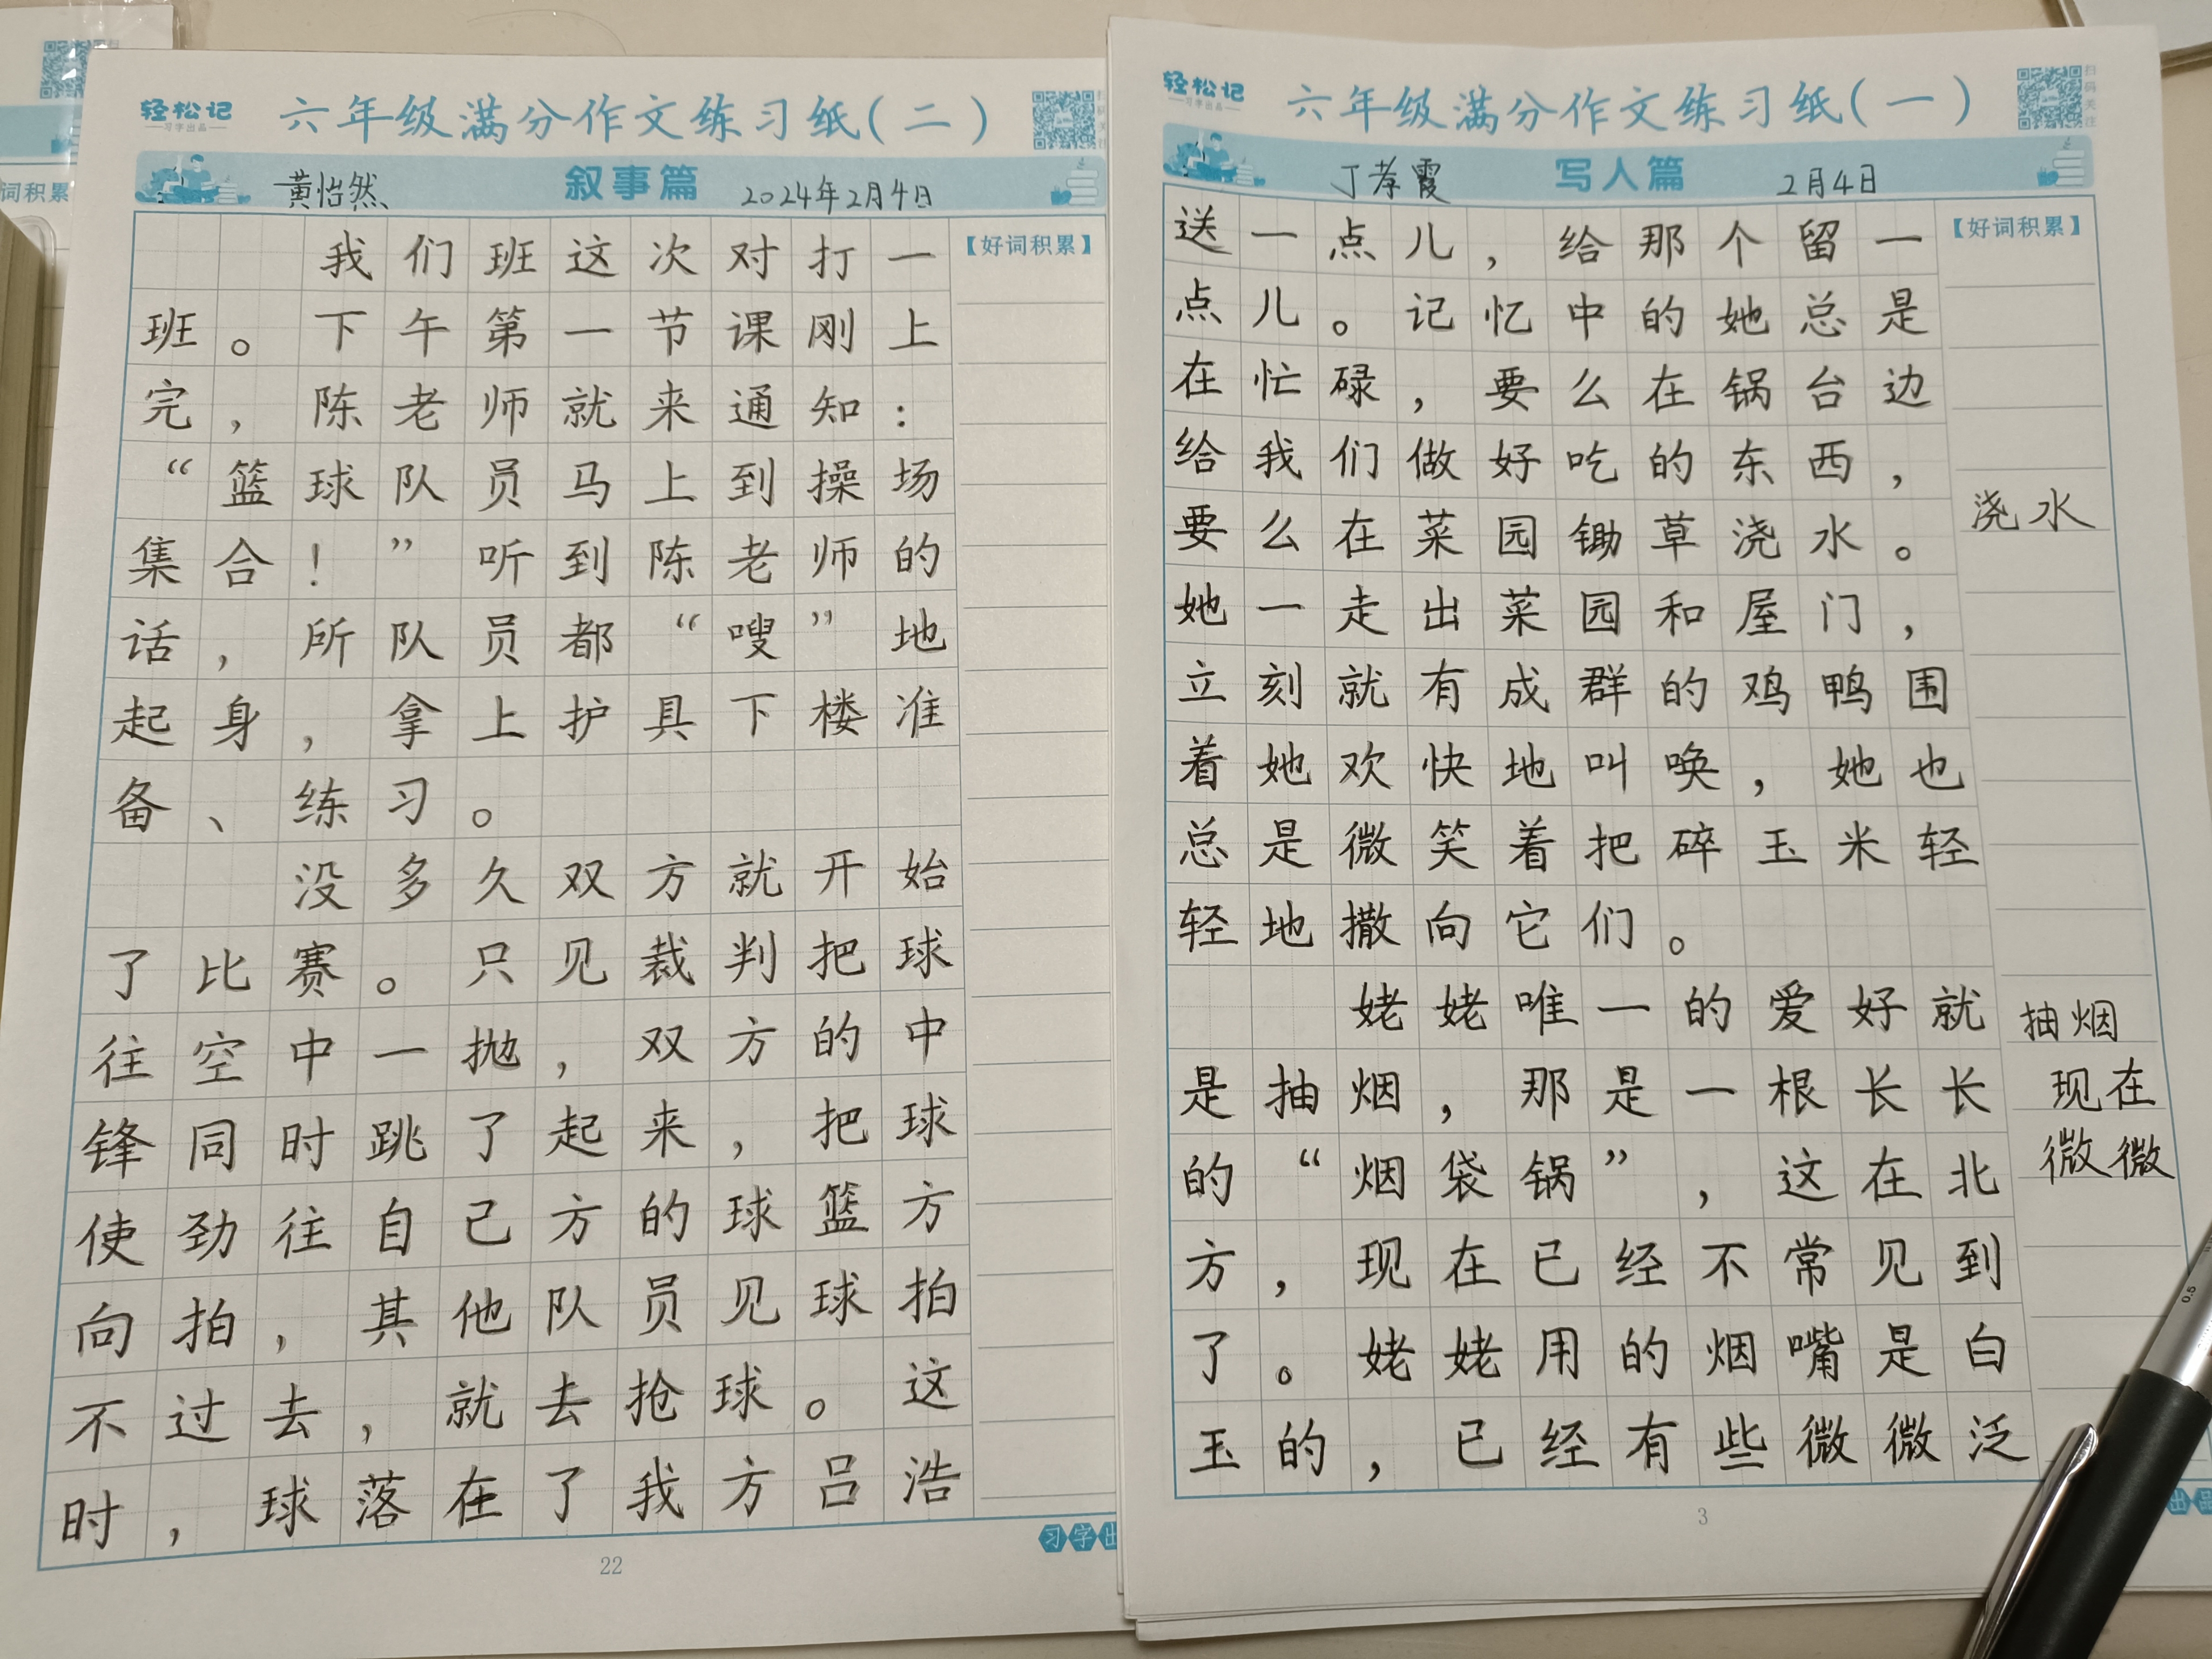 轻松记
习字出品
六年级满分作文练习纸(二)
黄怡然 叙事篇 2024年2月4日
【好词积累】
我们班这次对打一
班。下午第一节课刚上
完,陈老师就来通知:
“篮球队员马上到操场
集合!”听到陈老师的
话,所队员都“嗖”地
起身,拿上护具下楼准
备、练习。
没多久双方就开始
了比赛。只见裁判把球
往空中一抛,双方的中
锋同时跳了起来,把球
使劲往自己方的球篮方
向拍,其他队员见球拍
不过去,就去抢球。这
时,球落在了我方吕浩
习字出
22
轻松记
习字出品
六年级满分作文练习纸(一)
扫码关注
丁孝霞 写人篇 2月4日
【好词积累】
送一点儿,给那个留一
点儿。记忆中的她总是
在忙碌,要么在锅台边
给我们做好吃的东西,
要么在菜园锄草浇水。
她一走出菜园和屋门,
立刻就有成群的鸡鸭围
着她欢快地叫唤,她也
总是微笑着把碎玉米轻
轻地撒向它们。
姥姥唯一的爱好就
是抽烟,那是一根长长
的“烟袋锅”,这在北
方,现在已经不常见到
了。姥姥用的烟嘴是白
玉的,已经有些微微泛
浇水
抽烟
现在
微微
3
出品
词积累
0.5